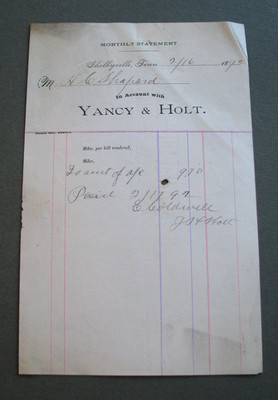 MONTHLY STATEMENT
Shelbyville, Tenn 2/16 1892
M A C Shapard
In Account with
YANCY & HOLT.
Mdse. per bill rendered,
Mdse.
To amt of a/c 9.70
Paid 2/17 92
E Coldwell